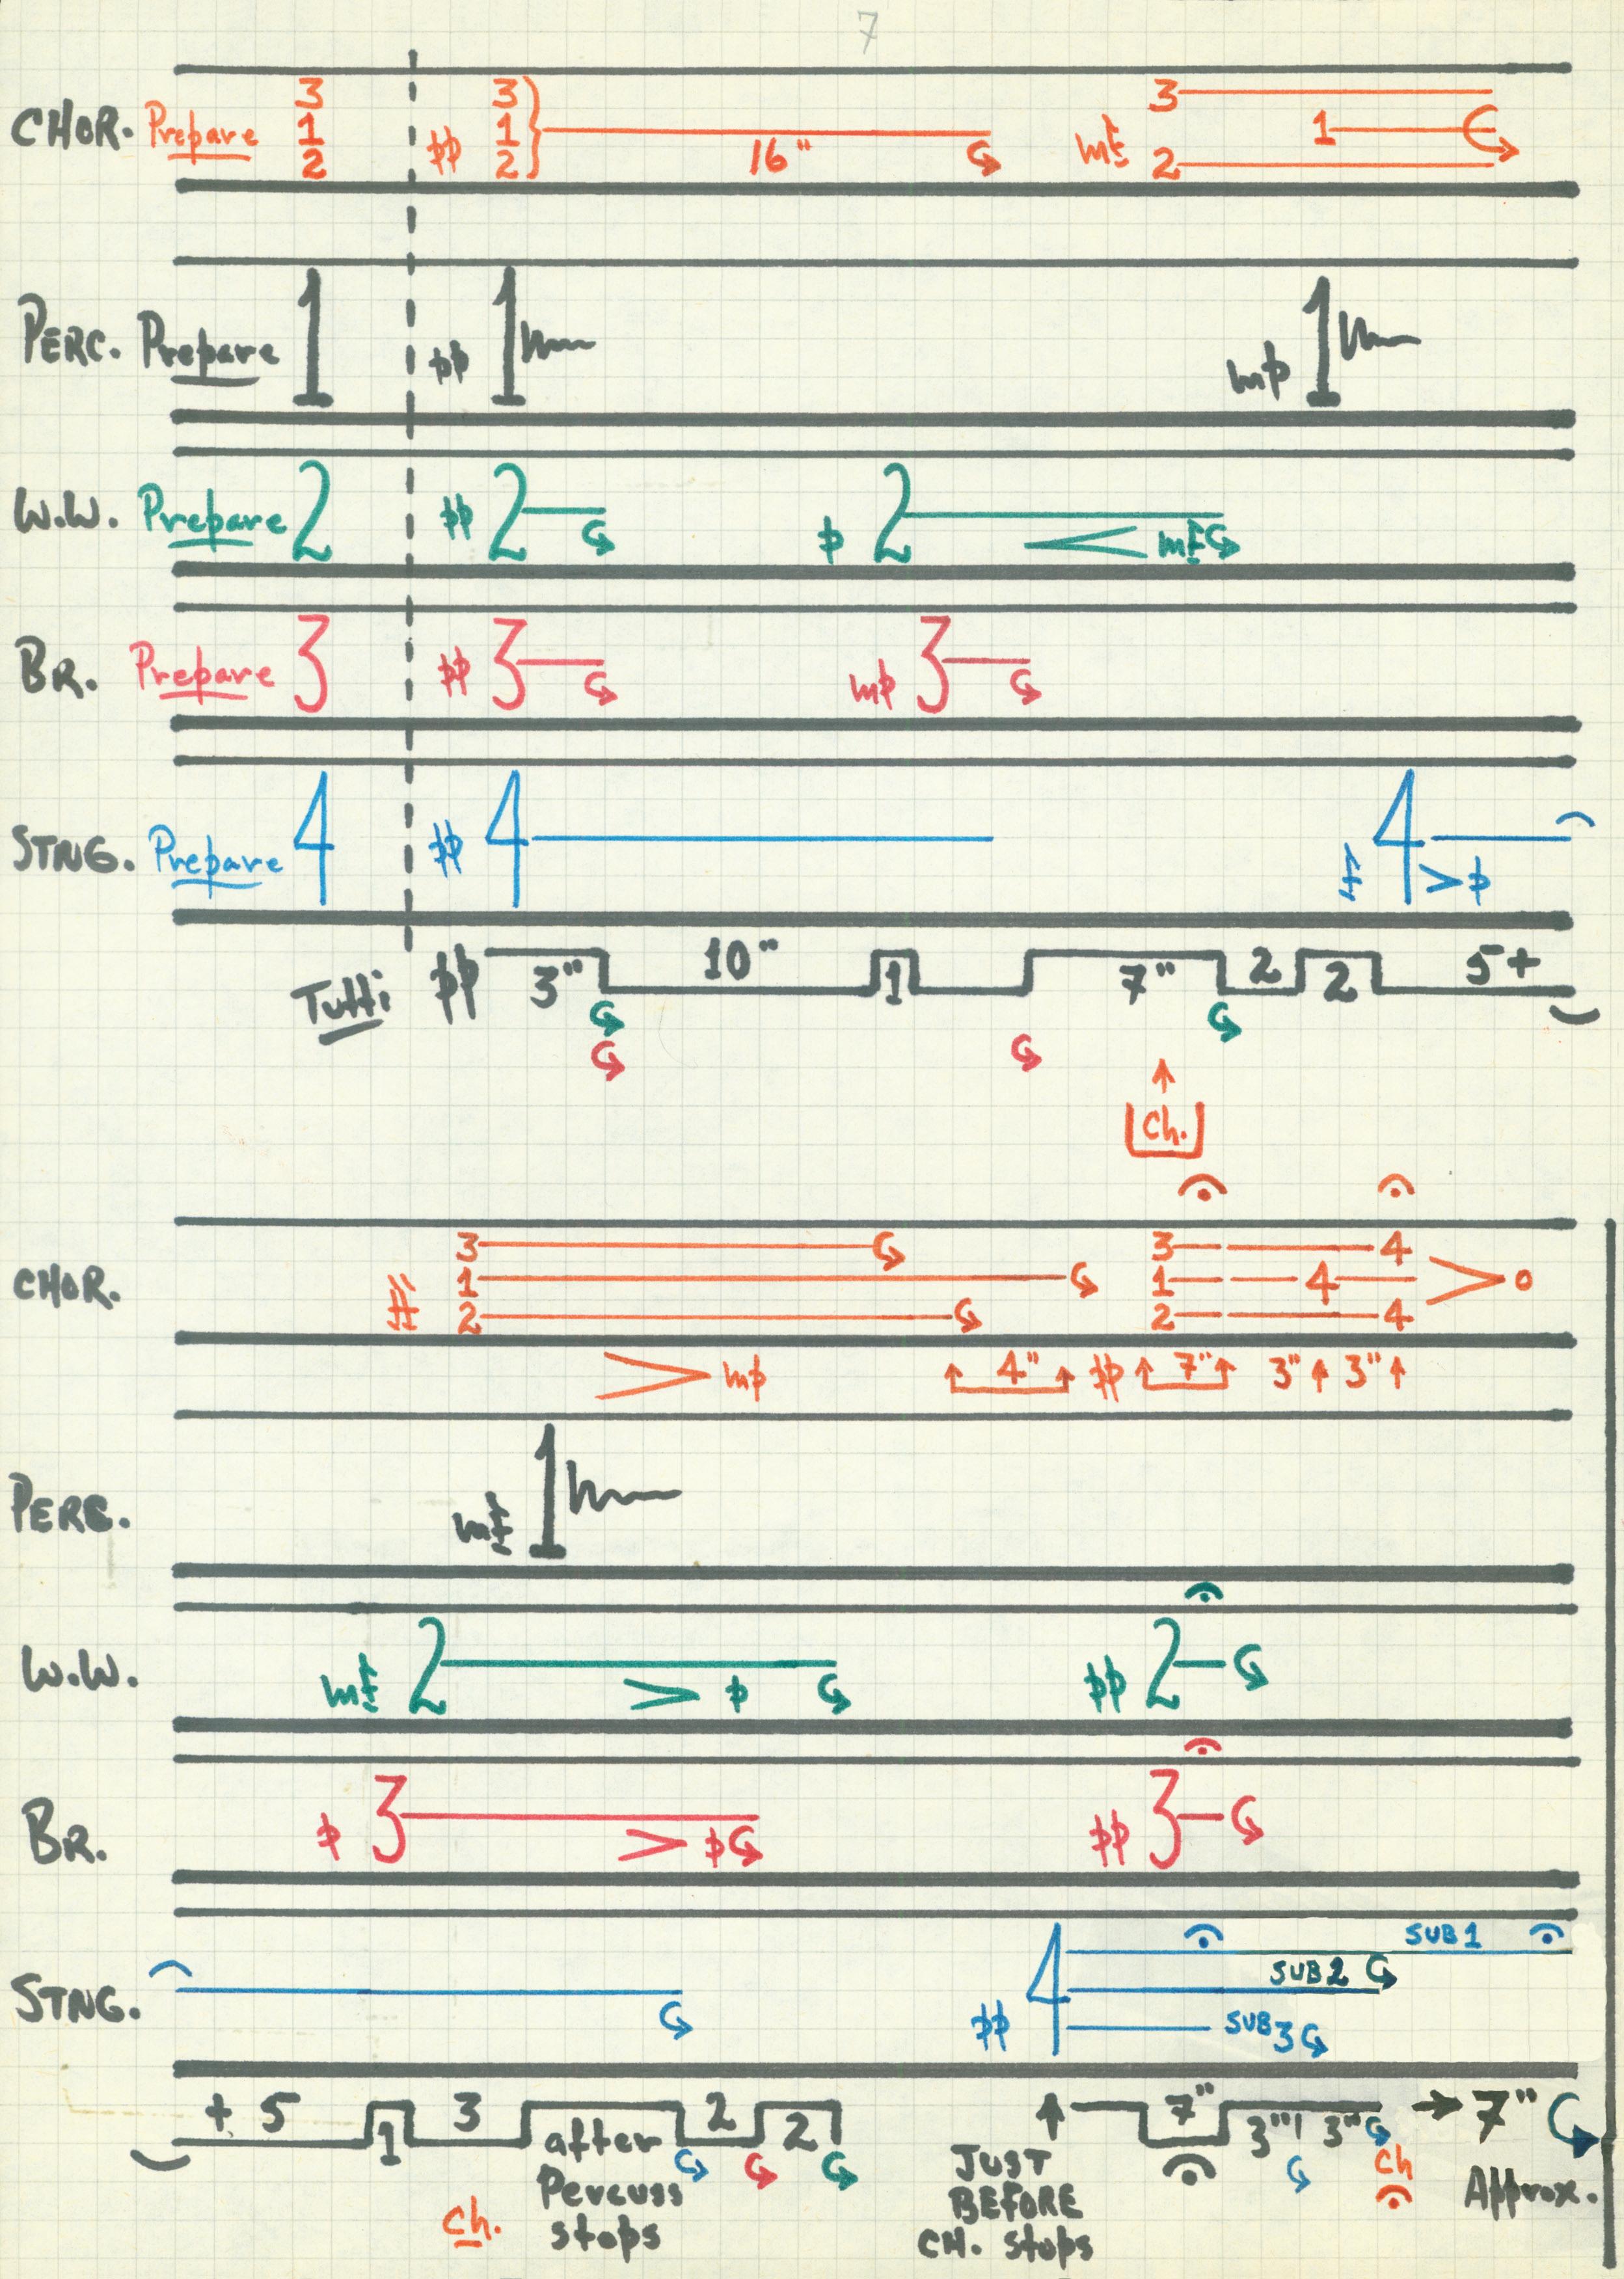 7
3 3 3
CHOR. Prepare 1 pp 1 16" mf 1
2 2 2
PERC. Prepare 1 pp 1 mp 1
W.W. Prepare 2 pp 2 p 2 mf
BR. Prepare 3 pp 3 mp 3
STNG. Prepare 4 pp 4 f 4 p
Tutti pp 3" 10" 1 7" 2 2 5+
Ch.
3 3 4
CHOR. ff 1 1 4 0
2 2 4
mp 4" pp 7" 3" 3"
PERC. mf 1
W.W. mf 2 p pp 2
BR. p 3 p pp 3
SUB 1
STNG. pp 4 SUB 2
SUB 3
+ 5 1 3 after 2 2 7" 3" 3" 7"
Percuss
stops
ch.
JUST
BEFORE
CH. stops
ch
Approx.